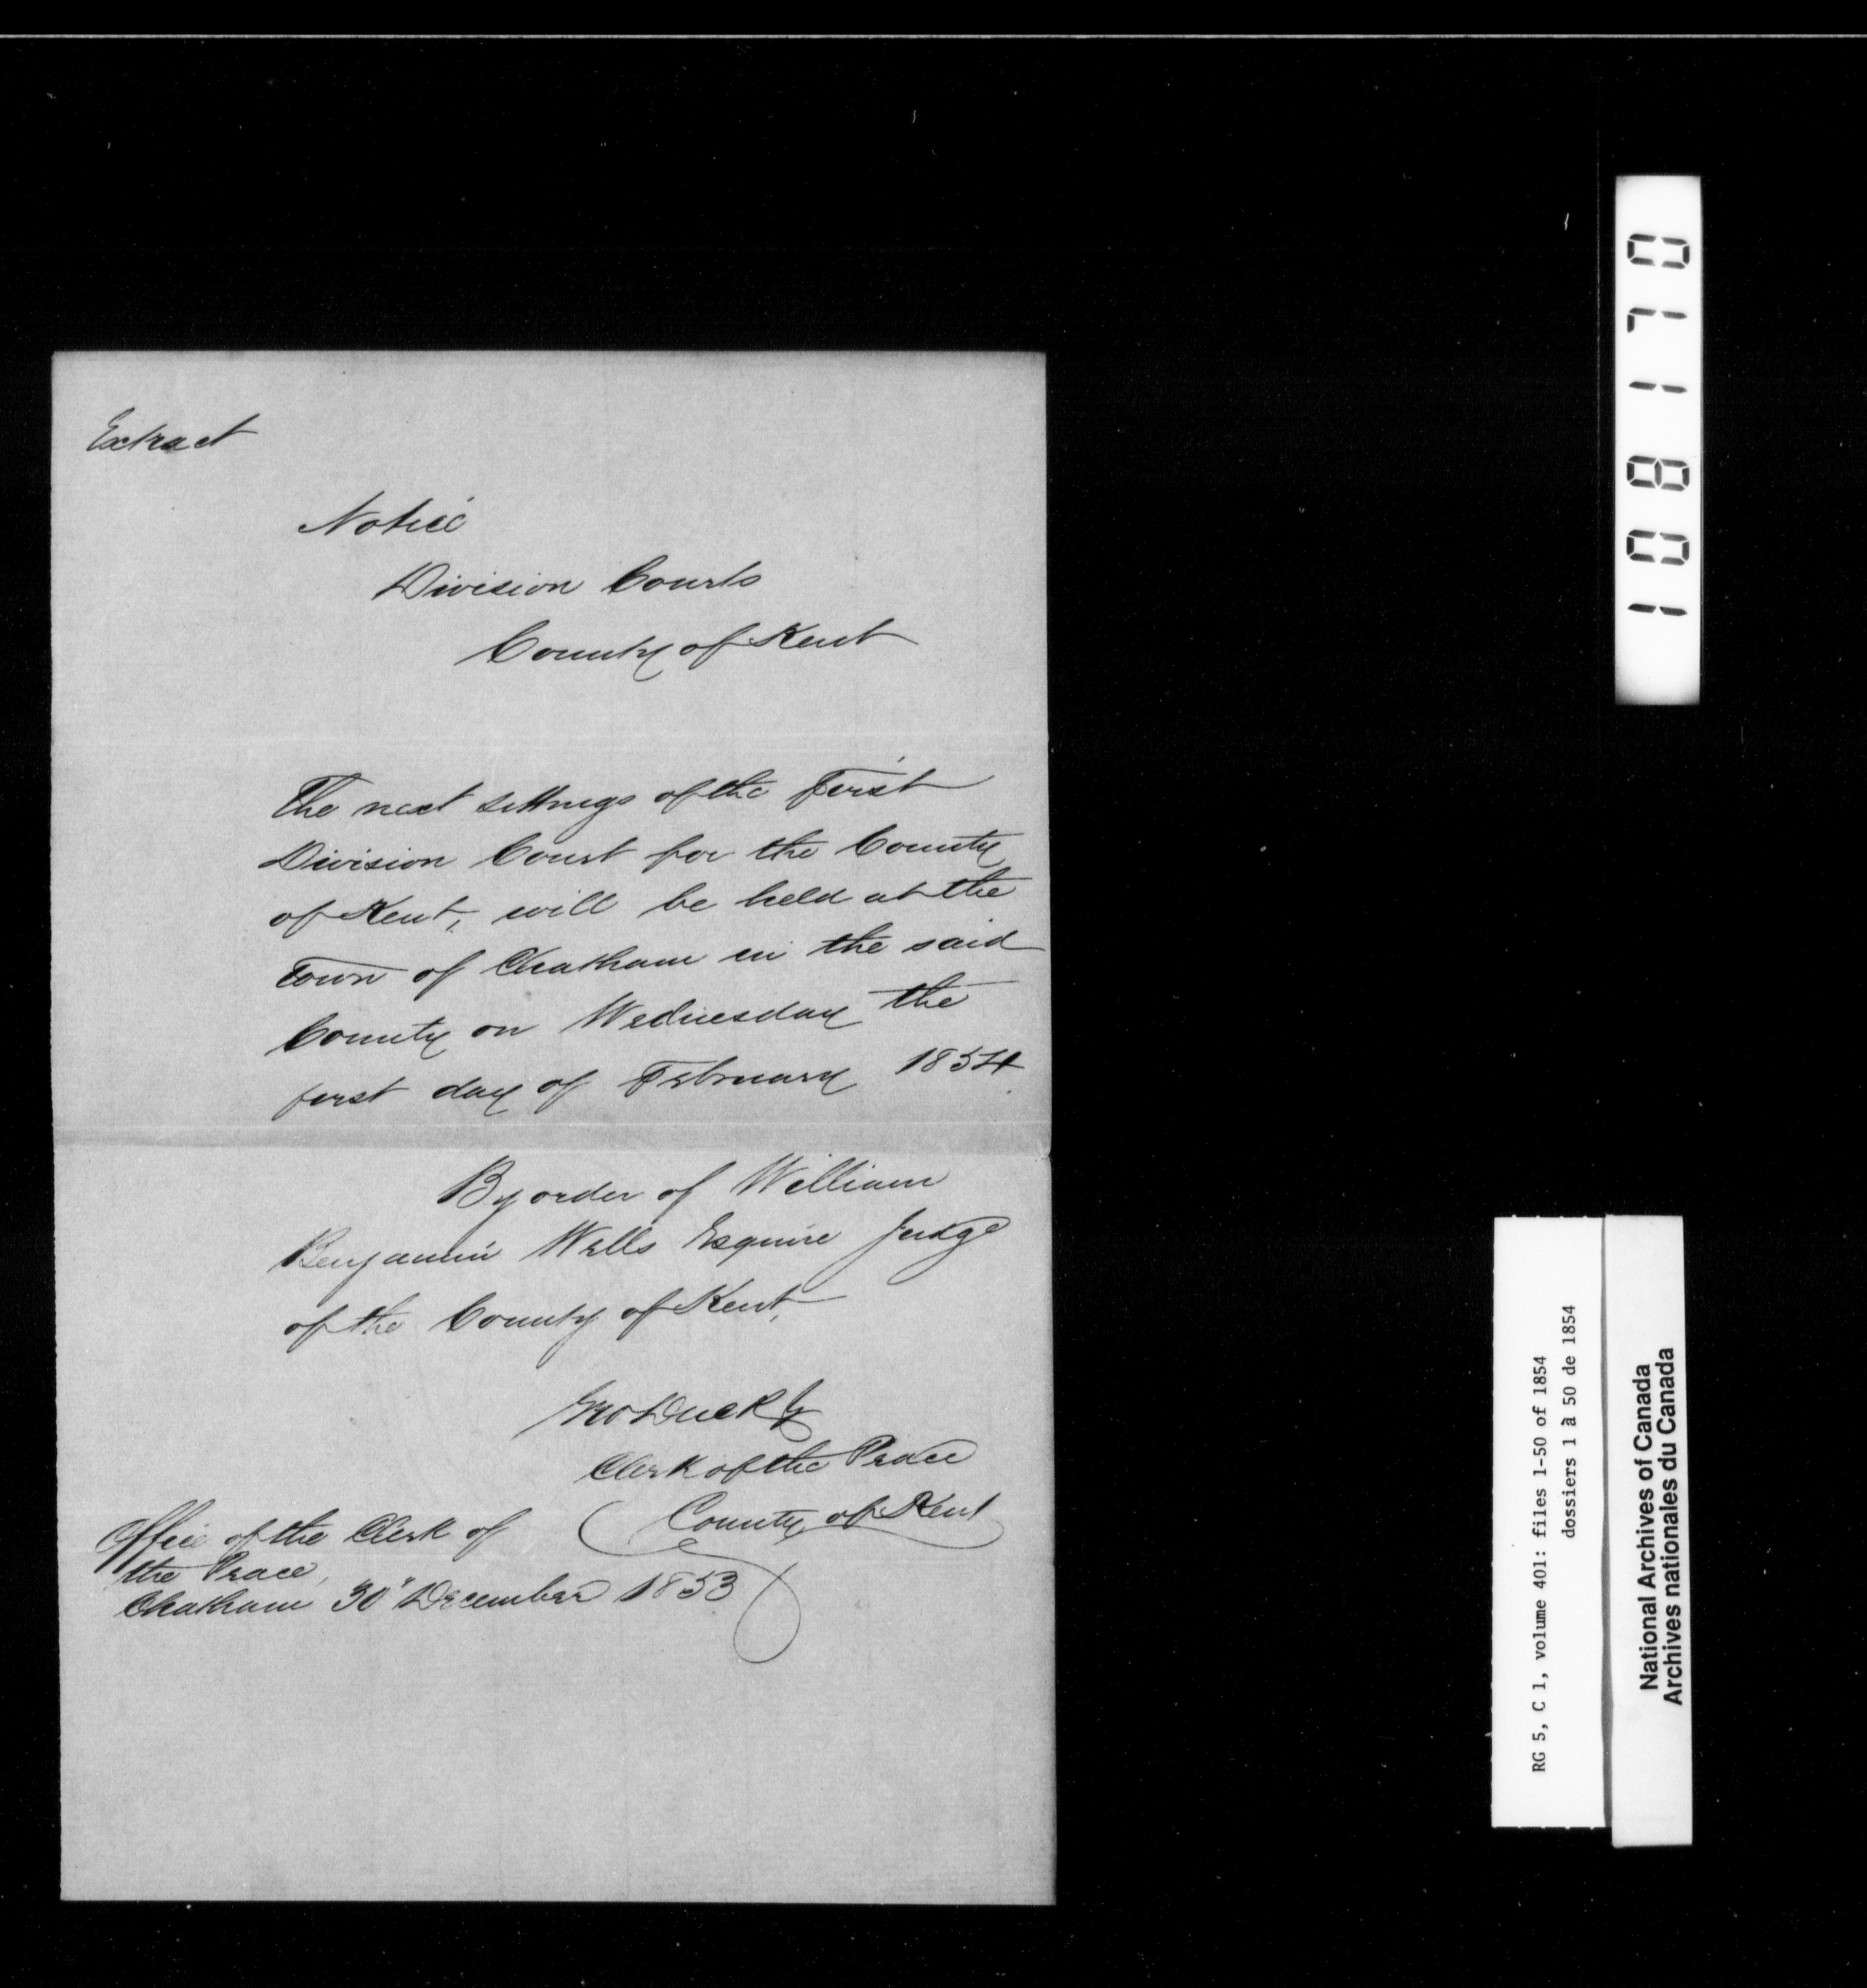 Extract
Notice
Division Courts
County of Kent
The next sittings of the First
Division Court for the County
of Kent, will be held at the
Town of Chatham in the said
County on Wednesday the
first day of February 1854
By order of William
Benjamin Wells Esquire Judge
of the County of Kent,
Geo Duck Jr
Clerk of the Peace
County of Kent
Office of the Clerk of
the Peace,
Chatham 30" December 1853
108170
RG 5, C 1, volume 401: files 1-50 of 1854
dossiers 1 à 50 de 1854
National Archives of Canada
Archives nationales du Canada